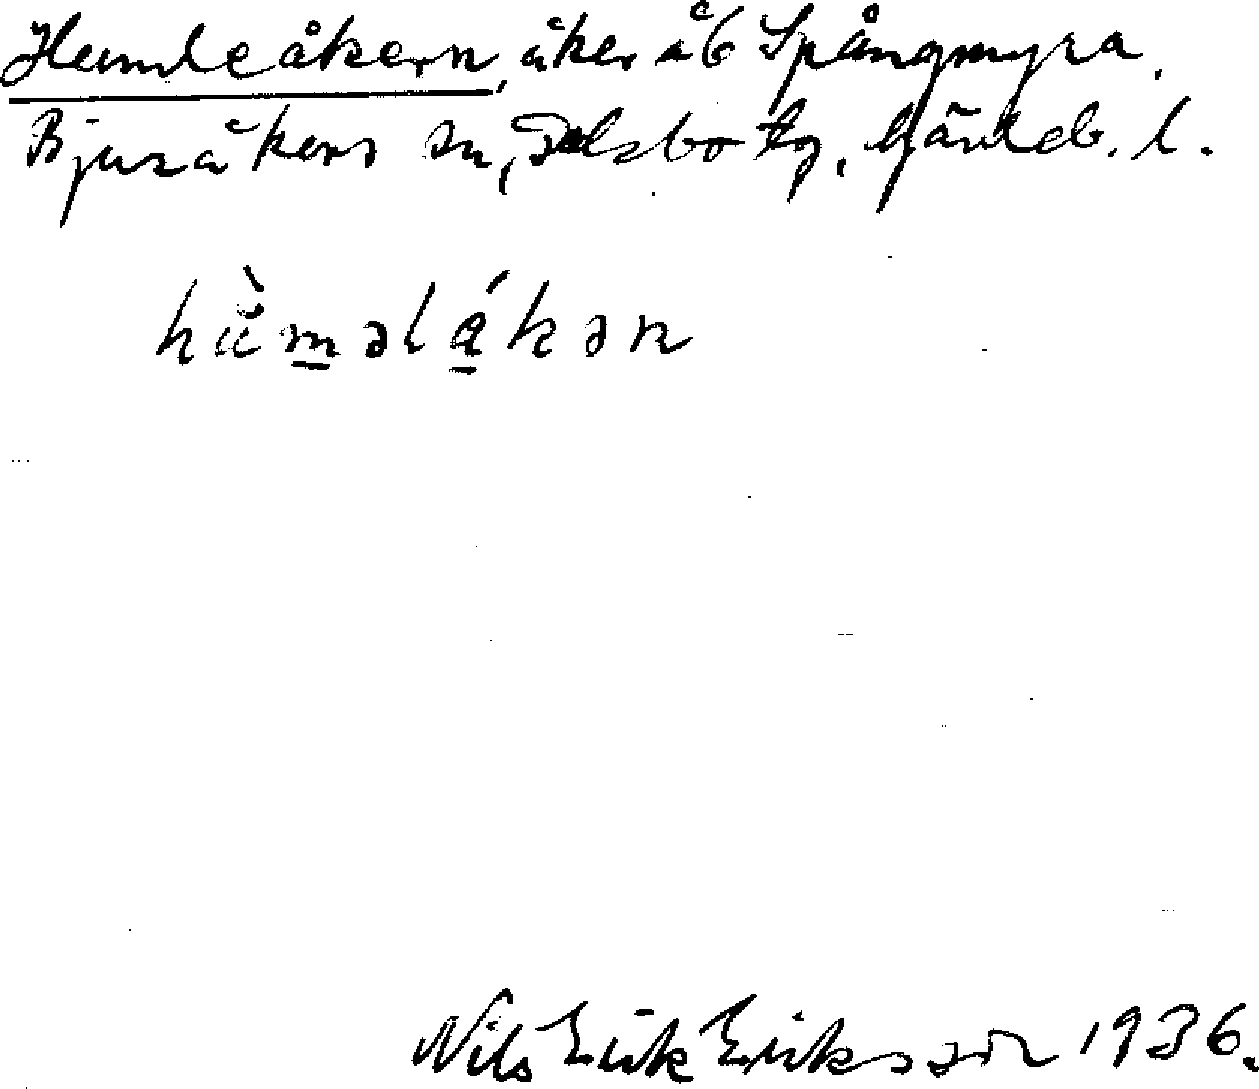 Humleåkern, åker åb Spångmyra,
Bjuråkers sn, Delsbo tg, Gävleb. l.
hu̇̀m̲əlá̲kən
Nils Erik Eriksson 1936.